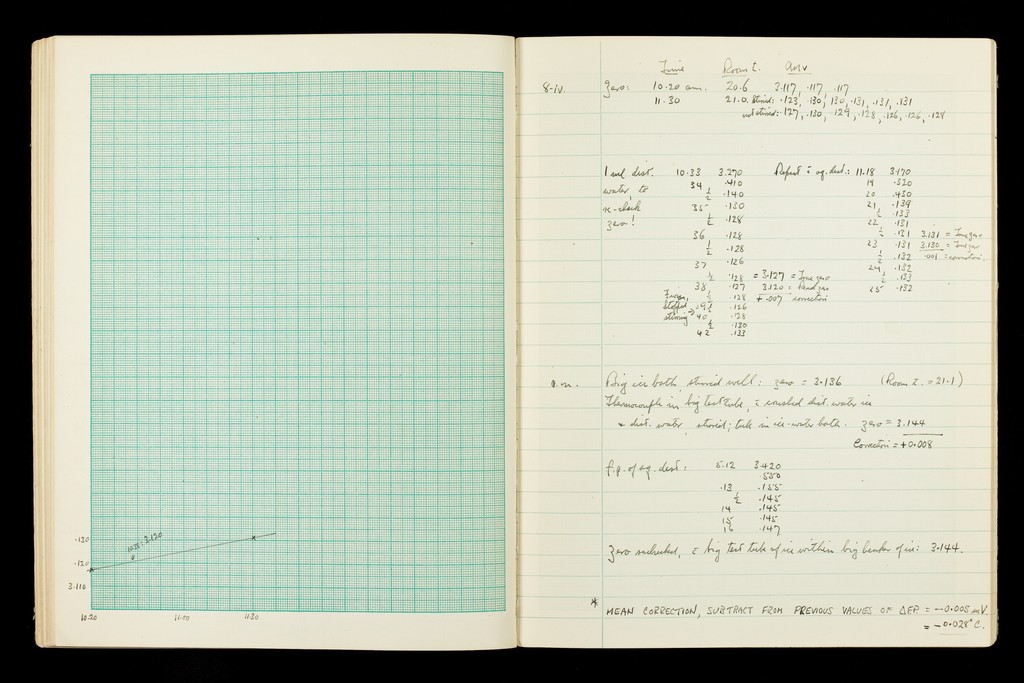 .130
int = 3.120
.120
3.110
10.20 11.00 11.30
Time Room t.
8-iv. Zero: 10.20 am. 20.6 3.117, .117, .117
11.30 21.0. stirred: .123, .130, .130, .131, .131, .131
not stirred: .127, .130, .129, .128, .126, .126, .128
1 ml dist. 10.33 3.270 Repeat aq. dest.: 11.18 3.170
34 .410 19 .520
water, to ½ .140 20 .430
re-check 35 .130 21 .139
zero! ½ .128 ½ .133
36 .128 22 .131
½ .128 ½ .131 3.131 = True zero
37 .126 23 .131 3.130 =
½ .128 = 3.127 = True zero ½ .132 .001 = correction
38 .127 3.120 = 24 .132
Frozen, ½ .128 + .007 correction ½ .133
stopped 39½ .126 25 .132
stirring → 40 .128
½ .130
42 .133
p.m. Big ice bath, stirred well: zero = 3.136 (Room t. = 21.1)
Thermocouple in big test tube, crushed dist. water ice
& dist. water, stirred; tube in ice-water bath. zero = 3.144
Correction = +0.008
f.p. of aq. dest: 5.12 3.420
.550
.13 .155
½ .145
14 .145
15 .145
16 .147
Zero rechecked, big test tube of ice within big beaker of ice: 3.144.
* MEAN CORRECTION, SUBTRACT FROM PREVIOUS VALUES OF ΔFP. = -0.005 mV.
= -0.028° C.